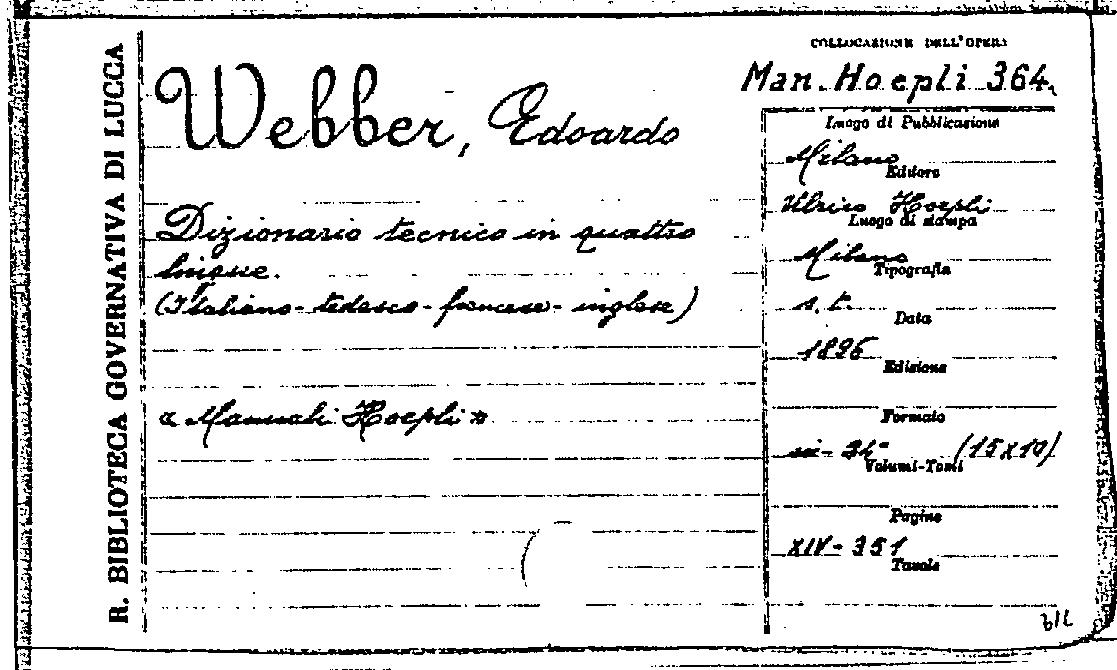 R. BIBLIOTECA GOVERNATIVA DI LUCCA
COLLOCAZIONE DELL'OPERA
Man. Hoepli 364.
Webber, Edoardo
Dizionario tecnico in quattro
lingue.
(Italiano - tedesco - francese - inglese)
« Manuali Hoepli »
Luogo di Pubblicazione
Milano
Editore
Ulrico Hoepli
Luogo di stampa
Milano
Tipografia
s. t.
Data
1896
Edizione
Formato
in- (15x10)
Volumi-Tomi
Pagine
XIV - 351
Tavole